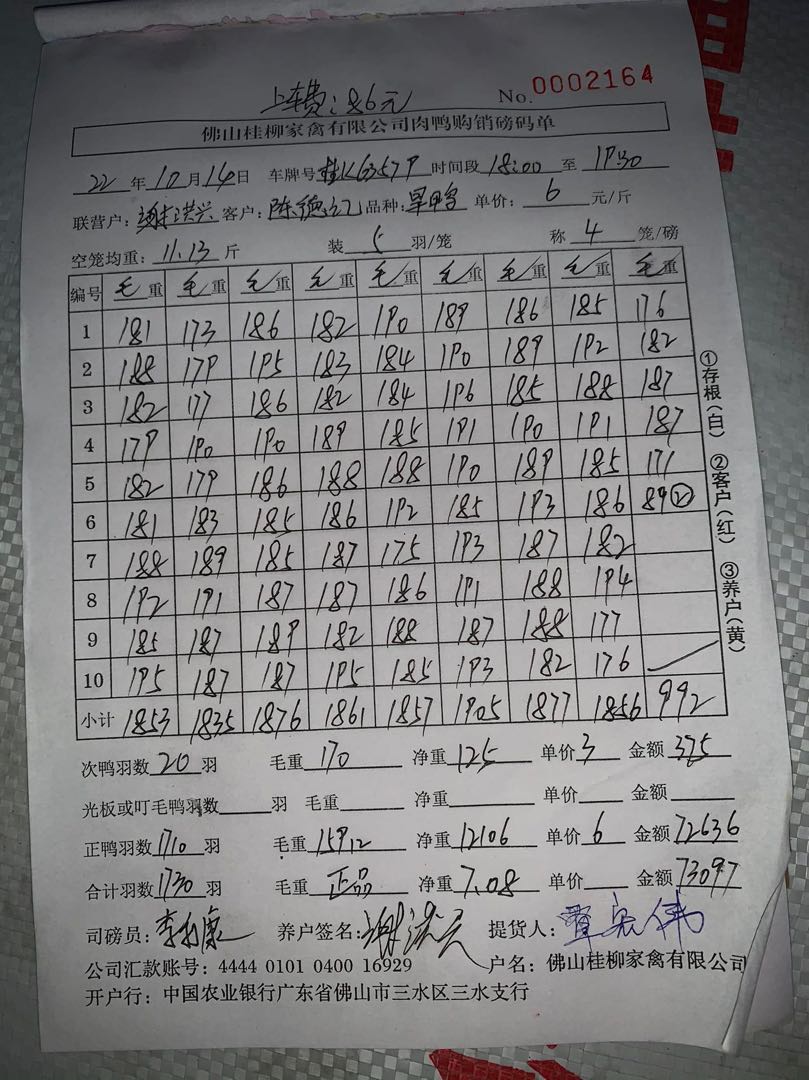 上车费：86元 No. 0002164
佛山桂柳家禽有限公司肉鸭购销磅码单
22 年 10 月 14 日 车牌号 桂K6357P 时间段 18:00 至 19:30
联营户：谢洪兴 客户：陈德 品种：旱鸭 单价：6 元/斤
空笼均重：11.13 斤 装 5 羽/笼 称 4 笼/磅
编号 毛重 毛重 毛重 毛重 毛重 毛重 毛重 毛重 毛重
1 181 173 186 182 190 189 186 185 176
2 188 179 195 183 184 190 189 192 182
3 182 177 186 182 184 196 185 188 187
4 179 190 190 189 185 191 190 191 187
5 182 179 186 188 188 190 189 185 171
6 181 183 185 186 192 185 193 186 89②
7 188 189 185 187 175 193 187 182
8 192 191 187 187 186 191 188 194
9 185 187 189 182 188 187 188 177
10 195 187 187 195 185 193 182 176
小计 1853 1835 1876 1861 1857 1905 1877 1856 992
次鸭羽数 20 羽 毛重 170 净重 125 单价 3 金额 375
光板或叮毛鸭羽数 羽 毛重 净重 单价 金额
正鸭羽数 1710 羽 毛重 15912 净重 12106 单价 6 金额 72636
合计羽数 1730 羽 毛重 正品 净重 7.08 单价 金额 73097
司磅员：李 康 养户签名：谢洪兴 提货人：覃 伟
公司汇款账号：4444 0101 0400 16929 户名：佛山桂柳家禽有限公司
开户行：中国农业银行广东省佛山市三水区三水支行
①存根（白） ②客户（红） ③养户（黄）